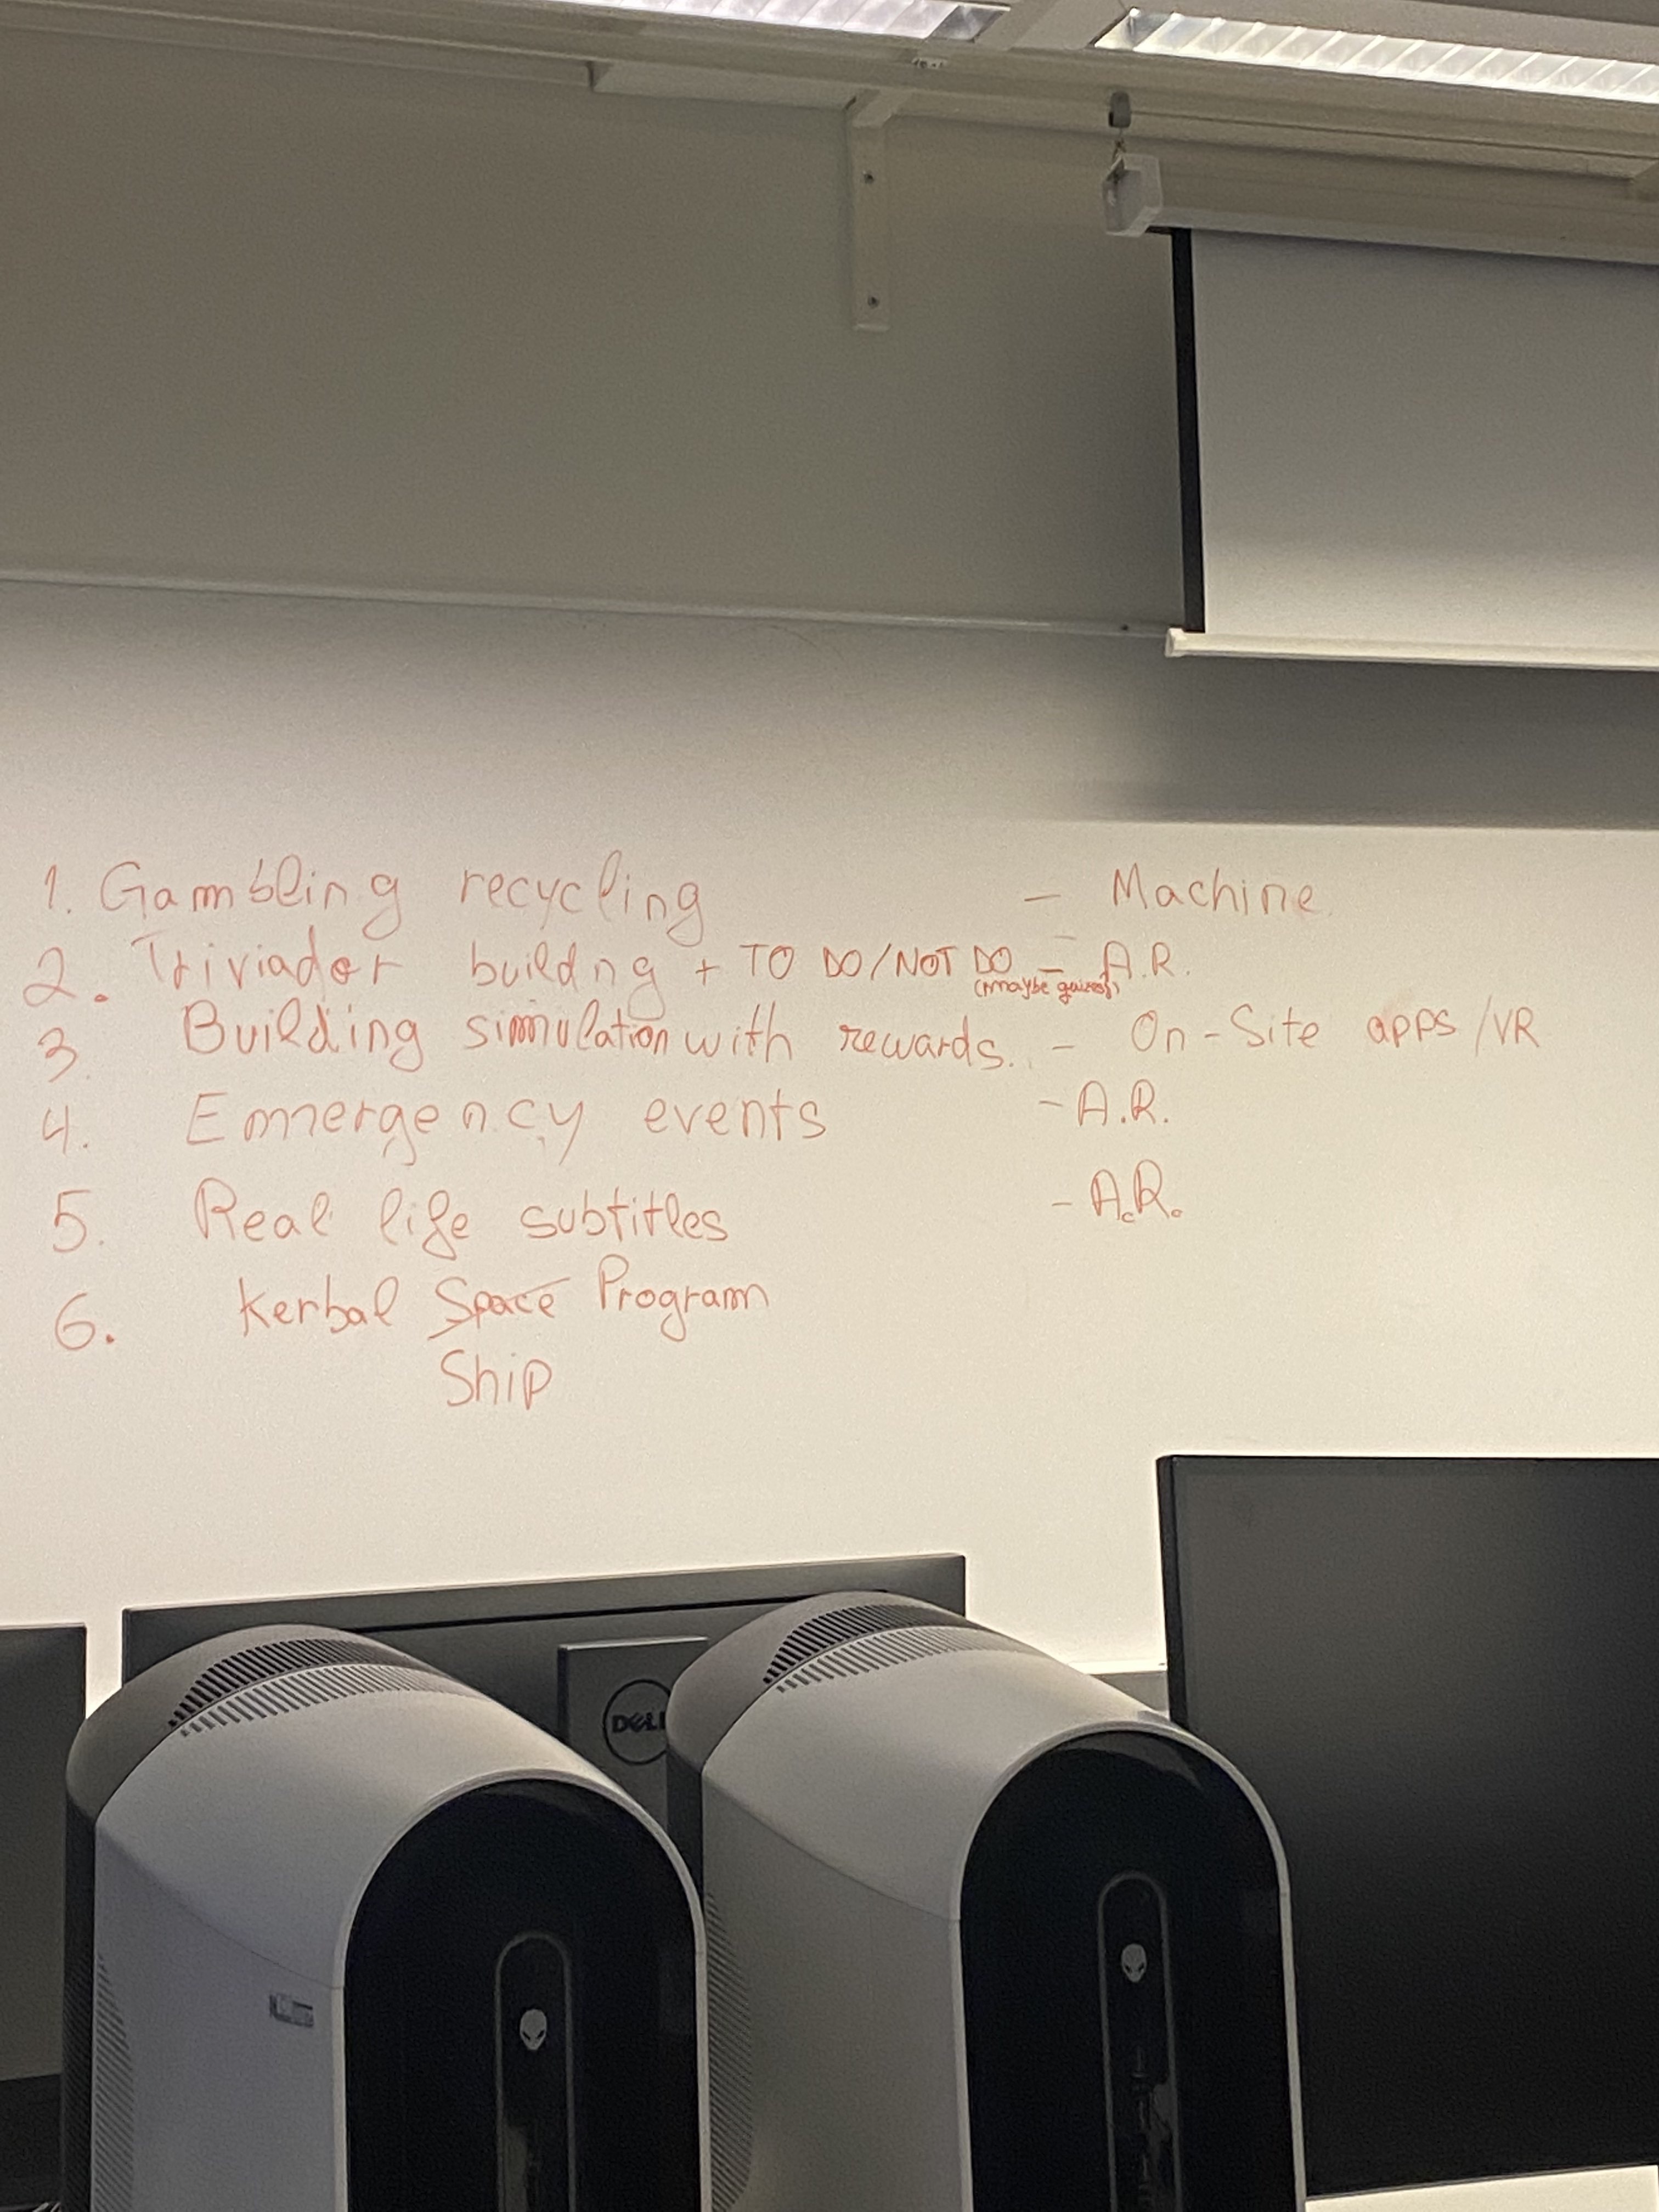 1. Gambling recycling – Machine
2. Triviador buildng + TO DO/NOT DO – A.R.
(maybe
3. Building simulation with rewards. – On-Site apps/VR
4. Emergency events – A.R.
5. Real life subtitles – A.R.
6. Kerbal Space Program
Ship
DELL